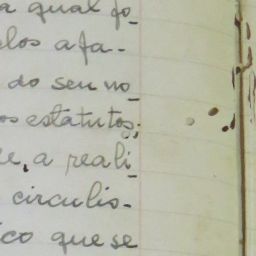 a qual fo_
elos afa-
do seu no_
os estatutos;
e, a reali_
circulis-
ico que se